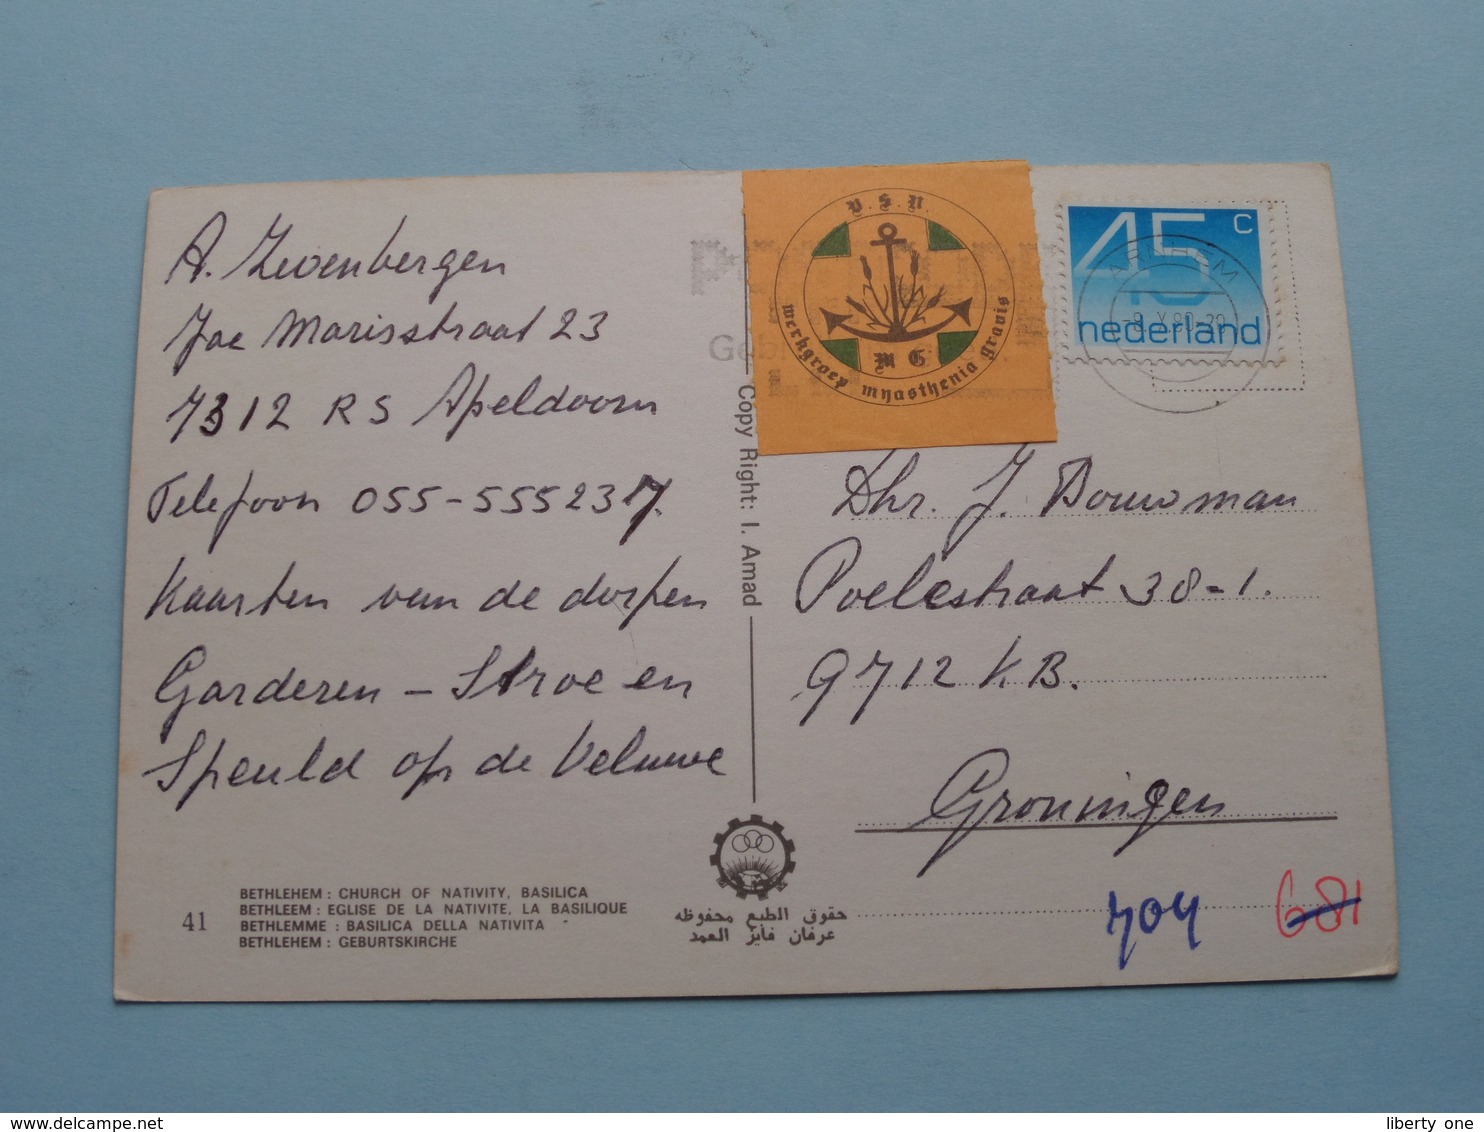 A. Zevenbergen
Jac Marisstraat 23
7312 RS Apeldoorn
Telefoon 055-555237.
Kaarten van de dorpen
Garderen - Stroe en
Speuld op de Veluwe
V.S.N.
werkgroep myasthenia gravis
M G
45 c
nederland
ARNHEM
Copy Right: I. Amad
Dhr. J. Bouwman
Poelestraat 38-1.
9712 KB.
Groningen
704 681
41
BETHLEHEM : CHURCH OF NATIVITY, BASILICA
BETHLEEM : EGLISE DE LA NATIVITE, LA BASILIQUE
BETHLEMME : BASILICA DELLA NATIVITA
BETHLEHEM : GEBURTSKIRCHE
حقوق الطبع محفوظه
عرفان فايز العمد
www.delcampe.net
liberty one